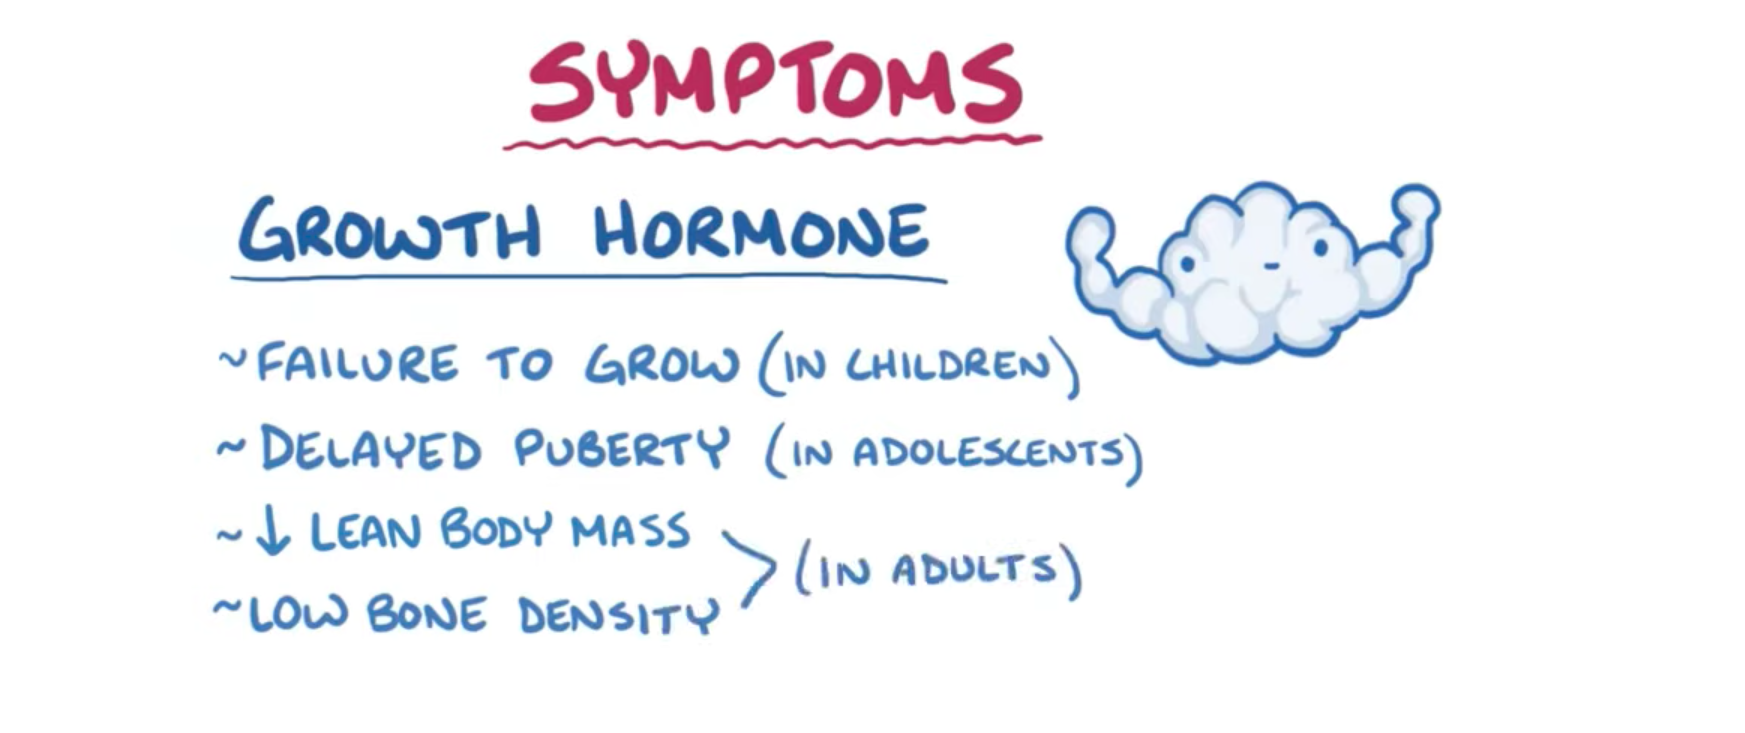 SYMPTOMS
GROWTH HORMONE
~FAILURE TO GROW (IN CHILDREN)
~ DELAYED PUBERTY (IN ADOLESCENTS)
~ ↓ LEAN BODY MASS
> (IN ADULTS)
~LOW BONE DENSITY